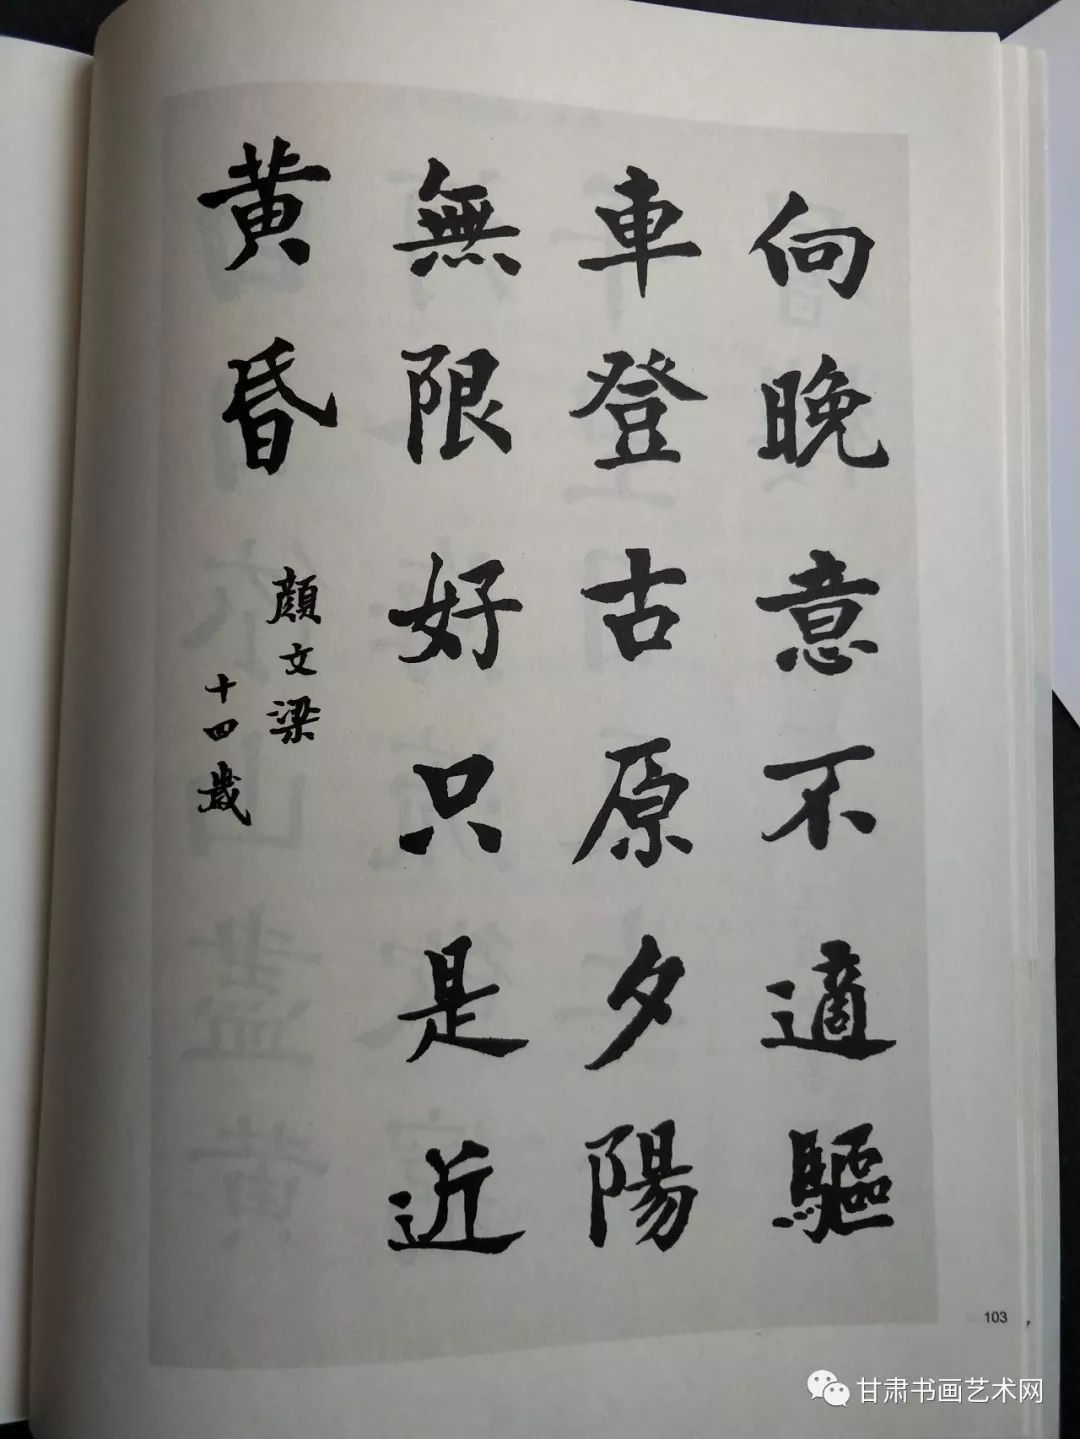 向晚意不適驅
車登古原夕陽
無限好只是近
黄昏
顔文梁
十四歲
103
甘肃书画艺术网